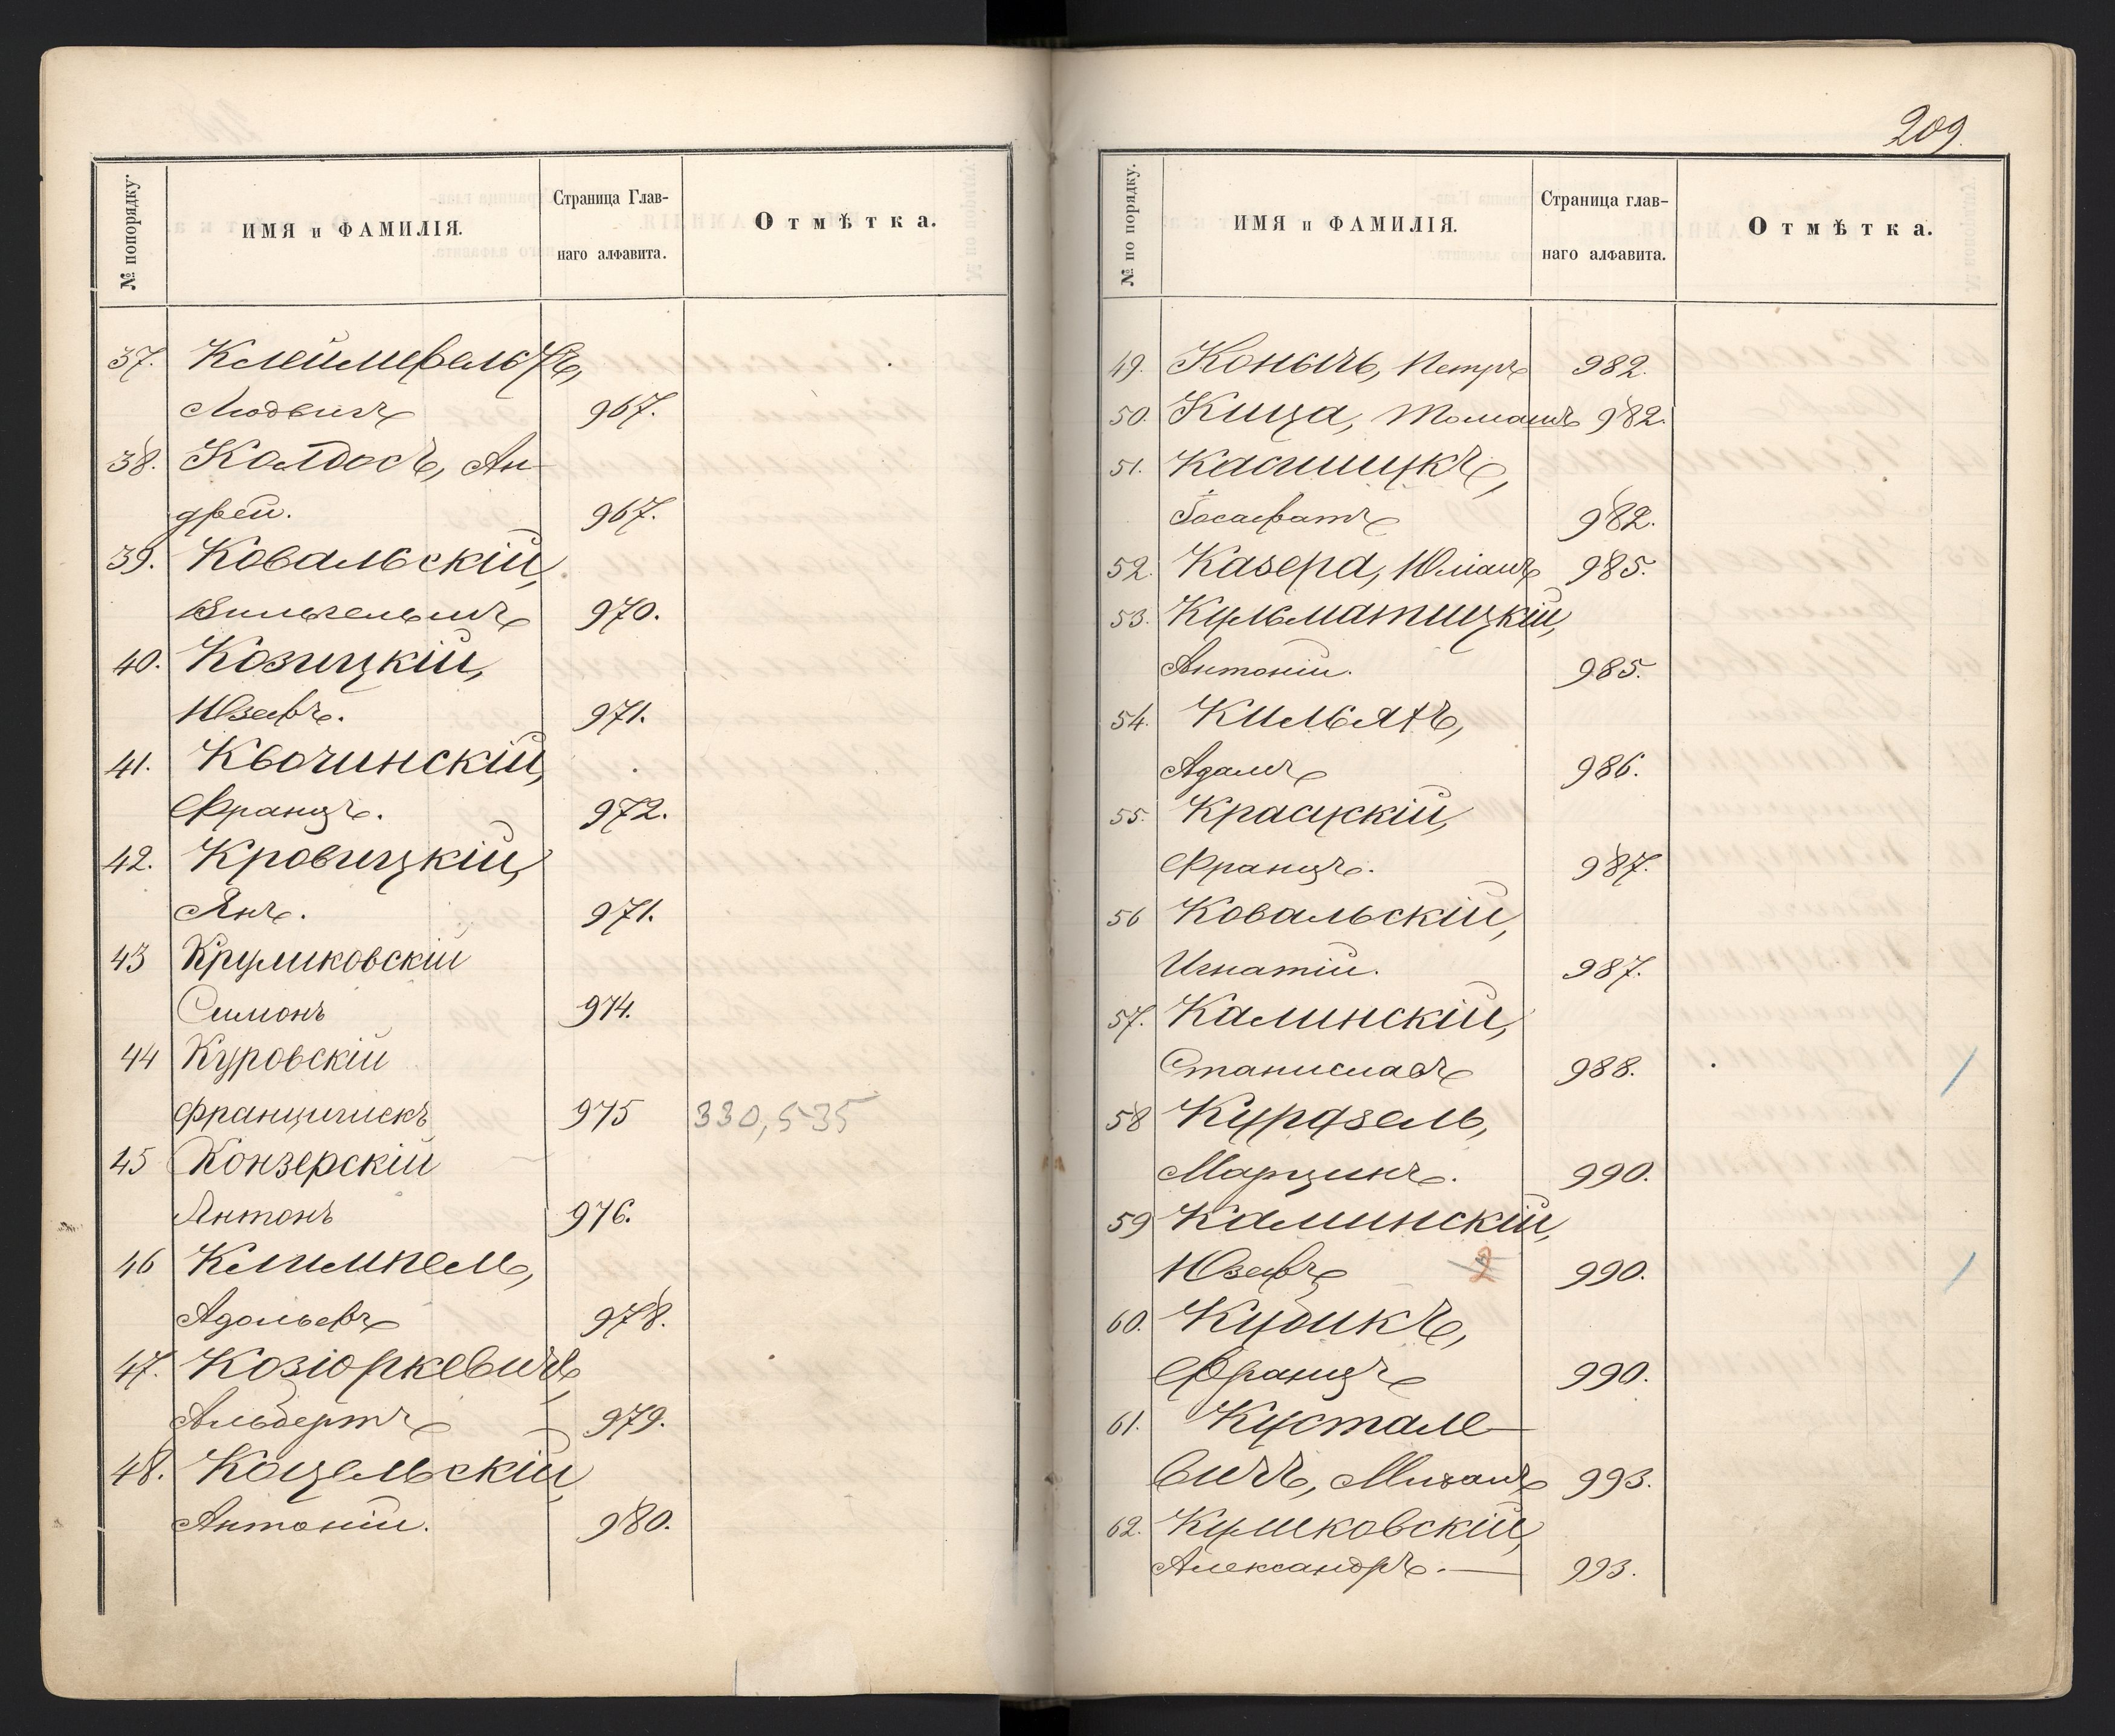 № попорядку.
ИМЯ и ФАМИЛІЯ.
Страница Глав-
наго алфавита.
Отмѣтка.
37. Клеймфельдъ,
Людвигъ 967.
38. Колдосъ, Ан-
дрей. 967.
39. Ковальскій,
Вильгельмъ 970.
40. Козицкій,
Юзефъ. 971.
41. Квочинскій,
Францъ. 972.
42. Кровицкій,
Янъ. 971.
43 Круликовскій
Симонъ 974.
44 Куровскій
Францишекъ 975 330,535
45 Конзерскій
Антонъ 976.
46 Климпель,
Адольфъ 978.
47. Козіоркевичъ,
Альбертъ 979.
48. Коцельскій,
Антоній. 980.
209.
№ по порядку.
ИМЯ и ФАМИЛІЯ.
Страница глав-
наго алфавита.
Отмѣтка.
49. Коничъ, Петръ 982.
50. Кица, Томашъ 982.
51.
Іосафатъ 982.
52. Казера, Юліанъ 985.
53. Кульматицкій,
Антоній. 985.
54. Кильянъ,
Адамъ 986.
55. Красускій,
Францъ. 987.
56 Ковальскій,
Игнатій. 987.
57. Калинскій,
Станиславъ 988.
58 Курдзель,
Марцинъ. 990.
59 Калинскій,
Юзефъ 2 990.
60. Кубикъ,
Францъ 990.
61. Кустале-
вичъ, Михаилъ 993.
62. Куликовскій,
Александръ. 993.